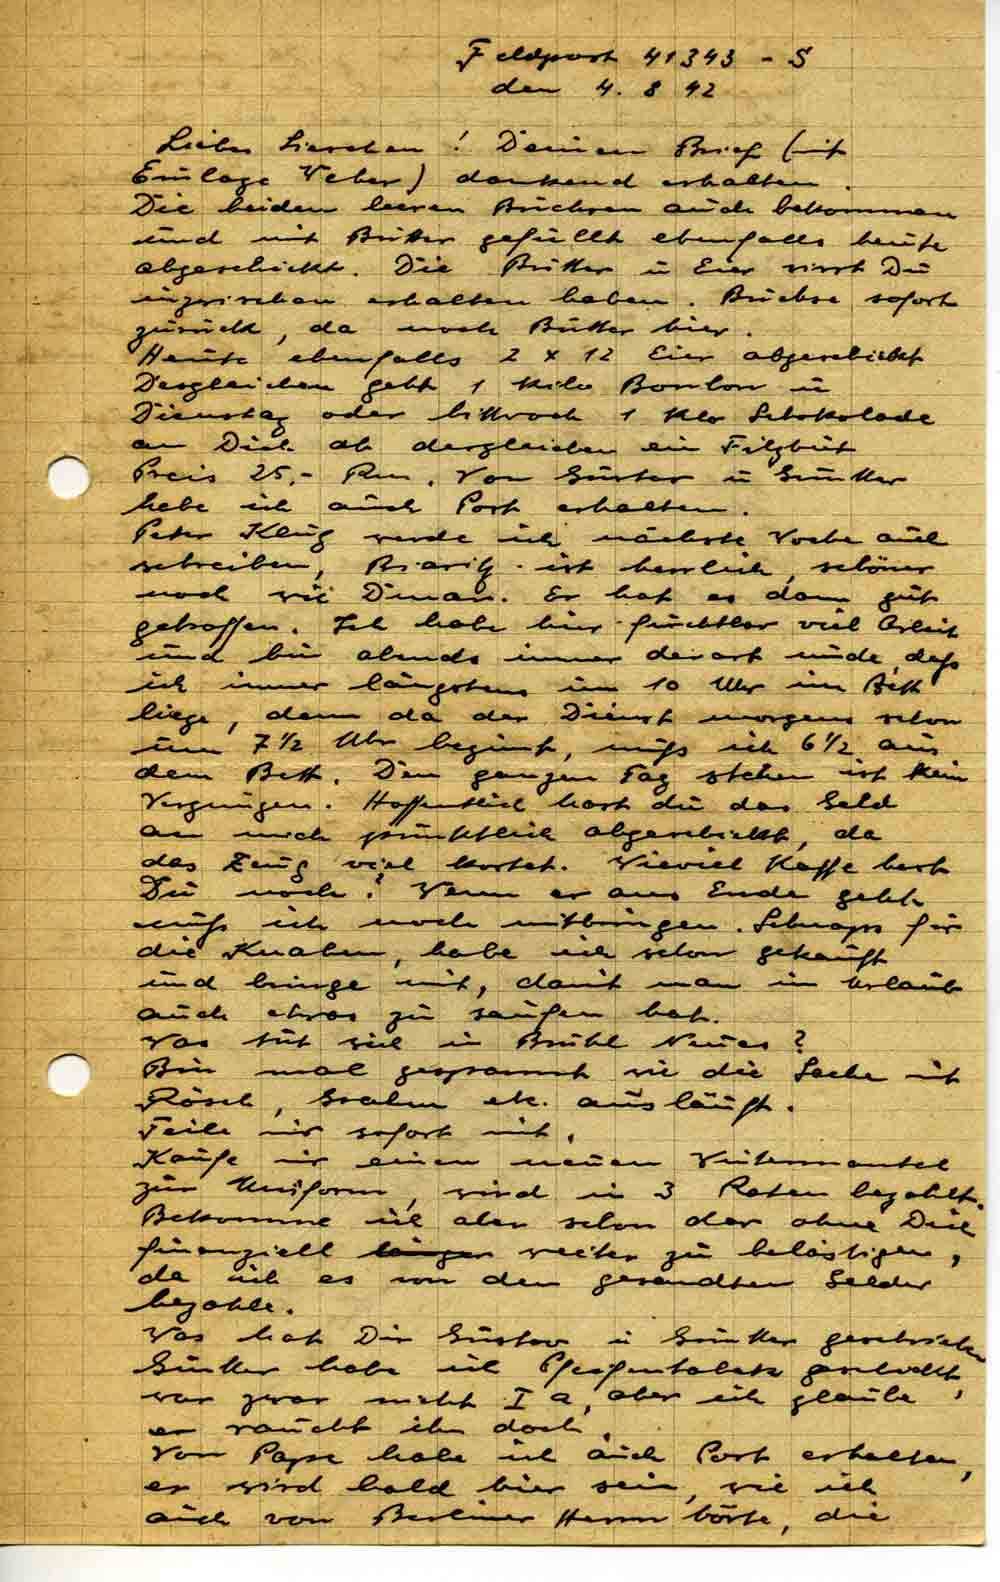 Feldpost 41343 - S
den 4. 8 42
Liebes Lieschen! Deinen Brief (mit
Einlage Weber) dankend erhalten.
Die beiden leeren Büchsen auch bekommen
und mit Butter gefüllt ebenfalls heute
abgeschickt. Die Butter u Eier wirst Du
inzwischen erhalten haben. Büchse sofort
zurück, da noch Butter hier.
Heute ebenfalls 2 x 12 Eier abgeschickt
Desgleichen geht 1 Kilo Bonbon u
Dienstag oder Mittwoch 1 Klo Schokolade
an Dich ab desgleichen ein Filzhut
Preis 25,- Rm. Von u Günther
habe ich auch Post erhalten.
Peter Klug werde ich nächste Woche auch
schreiben, Biaritz ist herrlich, schöner
noch wie Dinan. Er hat es dann gut
getroffen. Ich habe hier furchtbar viel Arbeit
und bin abends immer derart müde, daß
ich immer längstens um 10 Uhr im Bett
liege, denn da der Dienst morgens schon
um 7 1/2 Uhr beginnt, muß ich 6 1/2 aus
dem Bett. Den ganzen Tag stehen ist kein
Vergnügen. Hoffentlich hast du das Geld
an mich pünktlich abgeschickt, da
das Zeug viel kostet. Wieviel Kaffe hast
Du noch? Wenn er ans Ende geht
muß ich noch mitbringen. Schnaps für
die Knaben, habe ich schon gekauft
und bringe mit, damit man im Urlaub
auch etwas zu saufen hat.
Was tut sich in Brühl Neues?
Bin mal gespannt wie die Sache mit
Rösch, etc. ausläuft.
Teile mir sofort mit.
Kaufe mir einen neuen Wintermantel
zur Uniform, wird in 3 Raten bezahlt.
Bekomme ich aber schon der ohne Dich
finanziell länger weiter zu belästigen,
da ich es von den gesandten Gelder
bezahle.
Was hat Dir Gustav u Günther geschrieben
Günther habe ich Pfeifentabak geschickt,
war zwar nicht I a, aber ich glaube
er raucht ihn doch.
Von Pape habe ich auch Post erhalten,
er wird bald hier sein, wie ich
auch von Berliner Herrn hörte, die